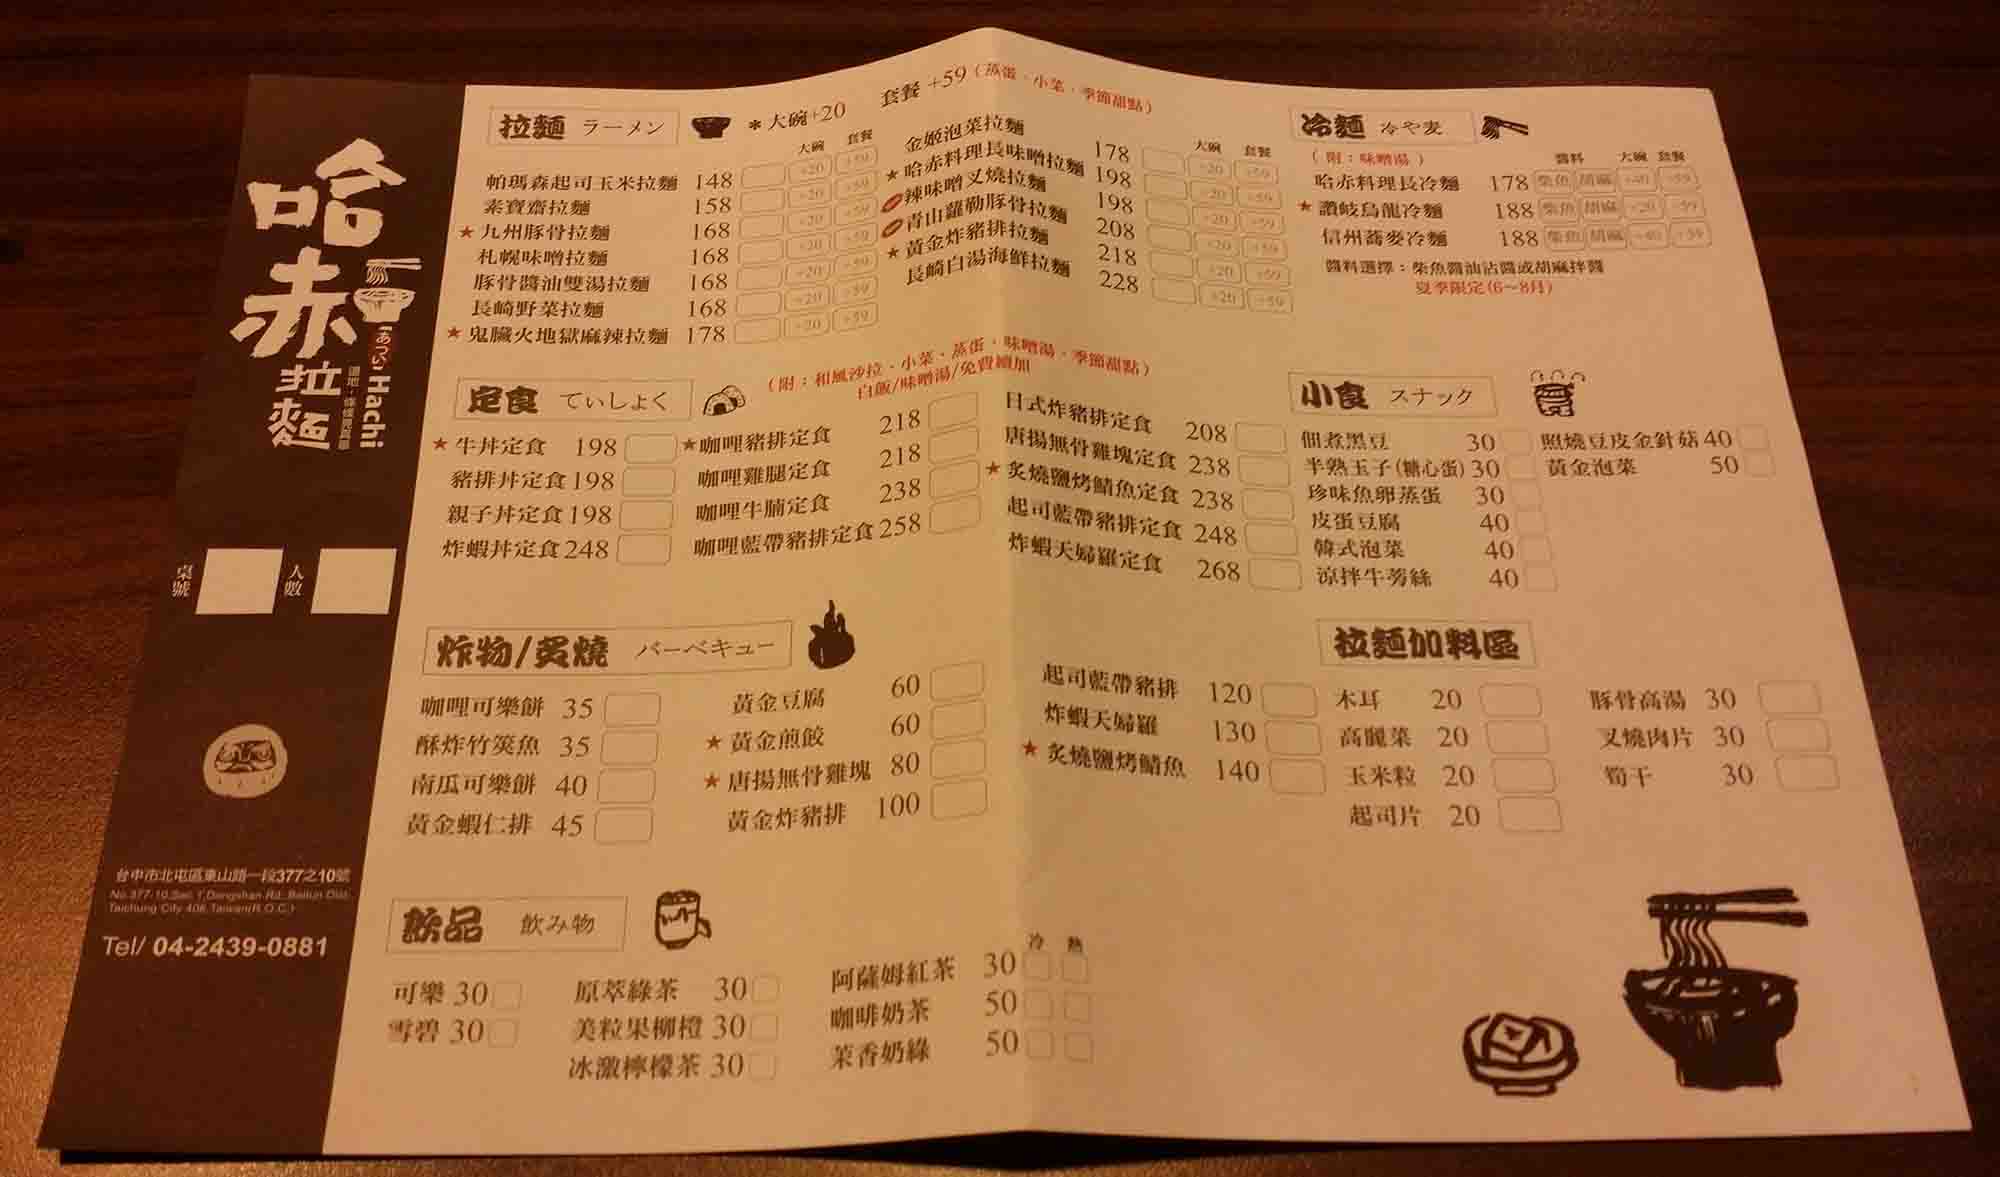 哈赤
拉麵
あつい Hachi
桌號
人數
台中市北屯區東山路一段377之10號
No.377-10,Sec.1,Dongshan Rd.,Beitun Dist.,
Taichung City 406,Taiwan(R.O.C.)
Tel/ 04-2439-0881
拉麵 ラーメン
*大碗+20 套餐 +59(蒸蛋、小菜、季節甜點)
大碗 套餐
帕瑪森起司玉米拉麵 148 +20 +59
素寶齋拉麵 158 +20 +59
★九州豚骨拉麵 168 +20 +59
札幌味噌拉麵 168 +20 +59
豚骨醬油雙湯拉麵 168 +20 +59
長崎野菜拉麵 168 +20 +59
★鬼臟火地獄麻辣拉麵 178 +20 +59
大碗 套餐
金姬泡菜拉麵 178 +20 +59
★哈赤料理長味噌拉麵 198 +20 +59
辣味噌叉燒拉麵 198 +20 +59
青山蘿勒豚骨拉麵 208 +20 +59
★黃金炸豬排拉麵 218 +20 +59
長崎白湯海鮮拉麵 228 +20 +59
冷麵 冷や麦
(附:味噌湯)
醬料 大碗 套餐
哈赤料理長冷麵 178 柴魚 胡麻 +40 +59
★讚岐烏龍冷麵 188 柴魚 胡麻 +20 +59
信州蕎麥冷麵 188 柴魚 胡麻 +40 +59
醬料選擇:柴魚醬油沾醬或胡麻拌醬
夏季限定(6~8月)
定食 ていしょく
(附:和風沙拉、小菜、蒸蛋、味噌湯、季節甜點)
白飯/味噌湯/免費續加
★牛丼定食 198
豬排丼定食 198
親子丼定食 198
炸蝦丼定食 248
★咖哩豬排定食 218
咖哩雞腿定食 218
咖哩牛腩定食 238
咖哩藍帶豬排定食 258
日式炸豬排定食 208
唐揚無骨雞塊定食 238
★炙燒鹽烤鯖魚定食 238
起司藍帶豬排定食 248
炸蝦天婦羅定食 268
小食 スナック
佃煮黑豆 30
半熟玉子(糖心蛋) 30
珍味魚卵蒸蛋 30
皮蛋豆腐 40
韓式泡菜 40
涼拌牛蒡絲 40
照燒豆皮金針菇 40
黃金泡菜 50
炸物/炙燒 バーベキュー
咖哩可樂餅 35
酥炸竹筴魚 35
南瓜可樂餅 40
黃金蝦仁排 45
黃金豆腐 60
★黃金煎餃 60
★唐揚無骨雞塊 80
黃金炸豬排 100
起司藍帶豬排 120
炸蝦天婦羅 130
★炙燒鹽烤鯖魚 140
拉麵加料區
木耳 20
高麗菜 20
玉米粒 20
起司片 20
豚骨高湯 30
叉燒肉片 30
筍干 30
飲品 飲み物
可樂 30
雪碧 30
原萃綠茶 30
美粒果柳橙 30
冰激檸檬茶 30
冷 熱
阿薩姆紅茶 30
咖啡奶茶 50
茉香奶綠 50